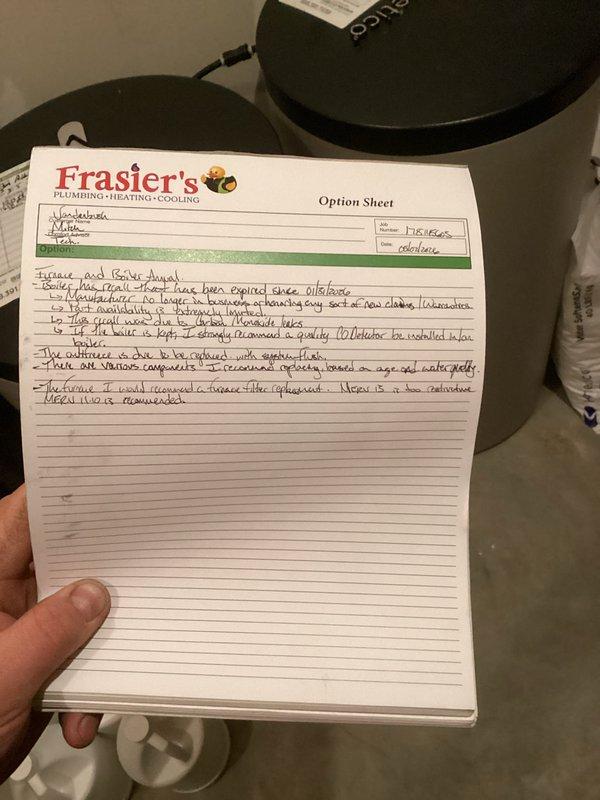 etico
Frasier's
PLUMBING • HEATING • COOLING
Option Sheet
Vanderbush
Customer Name
Mitch
Comfort Advisor
Tech.
Job
Number:
Date:
Option:
Furnace and Boiler Annual.
- Boiler has recall that have been expired since 01/31/2026
↳ Manufacturer no longer in business or honoring any sort of new claims / Warranties
↳ Part availability is extremely limited.
↳ This recall was due to Carbon Monoxide leaks
↳ If the boiler is kept, I strongly recommend a quality CO Detector be installed in/on
boiler.
- The antifreeze is due to be replaced with system flush.
- There are various components I recommend replacing based on age and water quality.
- The furnace I would recommend a furnace filter replacement. MERV 13 is too restrictive
MERV 11-10 is recommended.